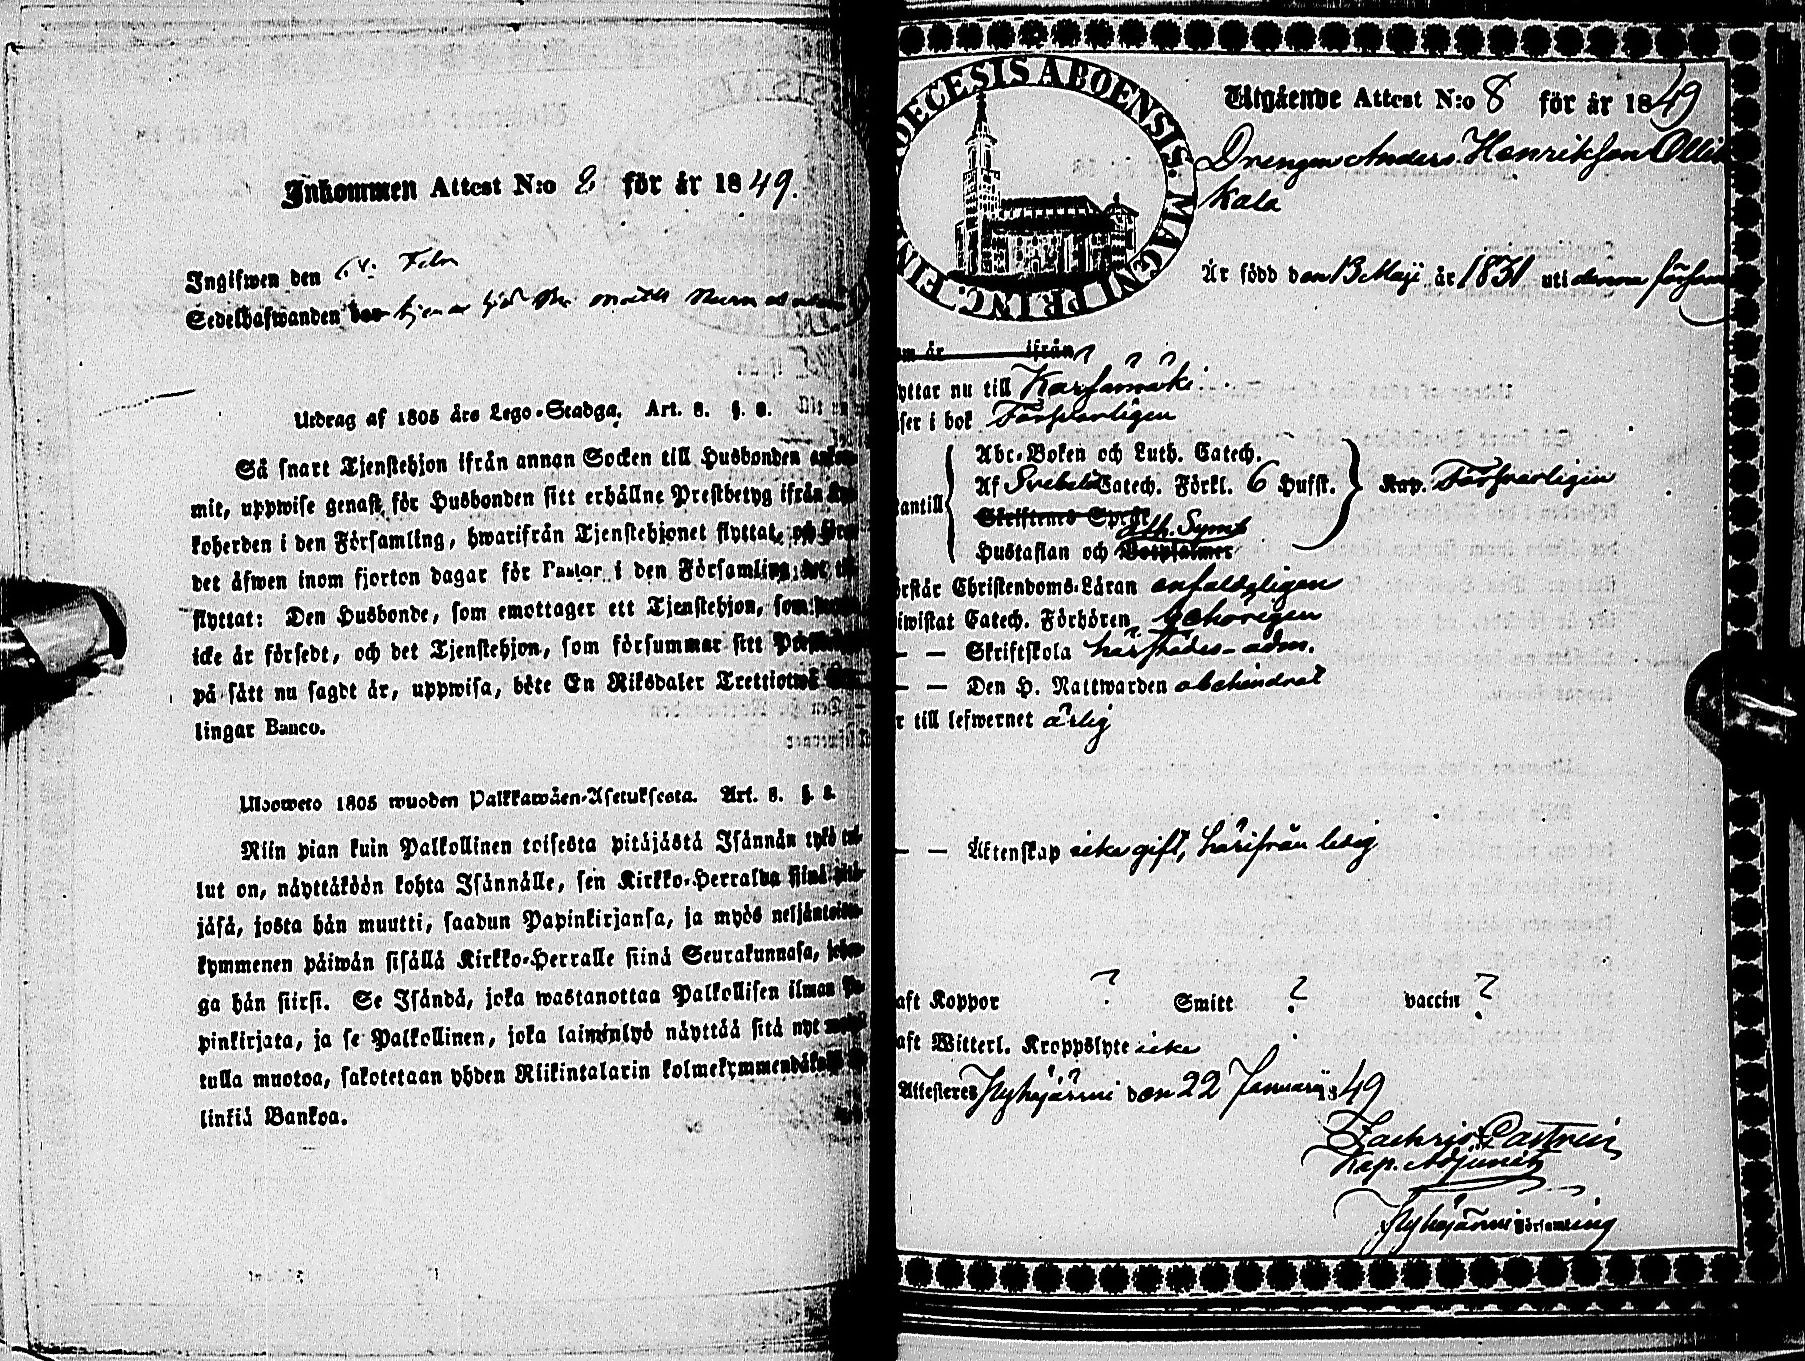 Inkommen Attest N:o 2 för år 1849.
Ingifwen den Febr
Sedelhafwanden
Utdrag af 1805 års Lego-Stadga, Art. 8. §. 8.
Så snart Tjenstehjon ifrån annan Socken till Husbonden
mit, uppwise genast för Husbonden sitt erhållne Prestbetyg ifrån
koherden i den Församling, hwarifrån Tjenstehjonet flyttat, och
det äfwen inom fjorton dagar för Pastor i den Församling,
flyttat: Den Husbonde, som emottager ett Tjenstehjon, som
icke är försedt, och det Tjenstehjon, som försummar sitt
på sätt nu sagdt är, uppwisa, böte En Riksdaler Trettiotwå
lingar Banco.
Uloswweto 1805 wuoden Palkkawäen-Asetuksesta. Art. 8. §. 8.
Niin pian kuin Palkollinen toisesta pitäjästä Isännän tykö
lut on, näyttäköön kohta Isännälle, sen Kirkko-Herralda
jäsä, josta hän muutti, saadun Papinkirjansa, ja myös
kymmenen päiwän sisällä Kirkko-Herralle siinä Seurakunnasa,
ga hän siirsi. Se Isändä, joka wastanottaa Palkollisen ilman
pinkirjata, ja se Palkollinen, joka laiminlyö näyttää sitä nyt
tulla muotoa, sakotetaan yhden Riikintalarin
linkiä Bankoa.
DECESIS ABOENSIS. MAGNI PRINC. FIN
Utgående Attest N:o 8 för år 1849
Drengen Anders Henriksson
kala
Är född den 13 Maji år 1831 uti denna
om år ifrån
yttar nu till Kärsämäki
ser i bok Försvarligen
Abc-Boken och Luth. Catech.
Af Svebelii Catech. Förkl. 6 Hufst.
Kap. Försvarligen
antill
Skriftenes Språk
Ath. Symb
Hustaflan och Botpsalmer
rstår Christendoms-Läran enfaldigligen
iwistat Catech. Förhören behörigen
— — Skriftskola härstädes adm.
— — Den H. Nattwarden obehindrat
r till lefwernet ärlig
— — Äktenskap icke gift, härifrån ledig
aft Koppor ? Smitt ? vaccin ?
aft Witterl. Kroppslyte icke
Attesteres Pyhäjärvi den 22 Januarii 1849
Zachris Castrén
Kap. Adjunct
Pyhäjärvi Församling